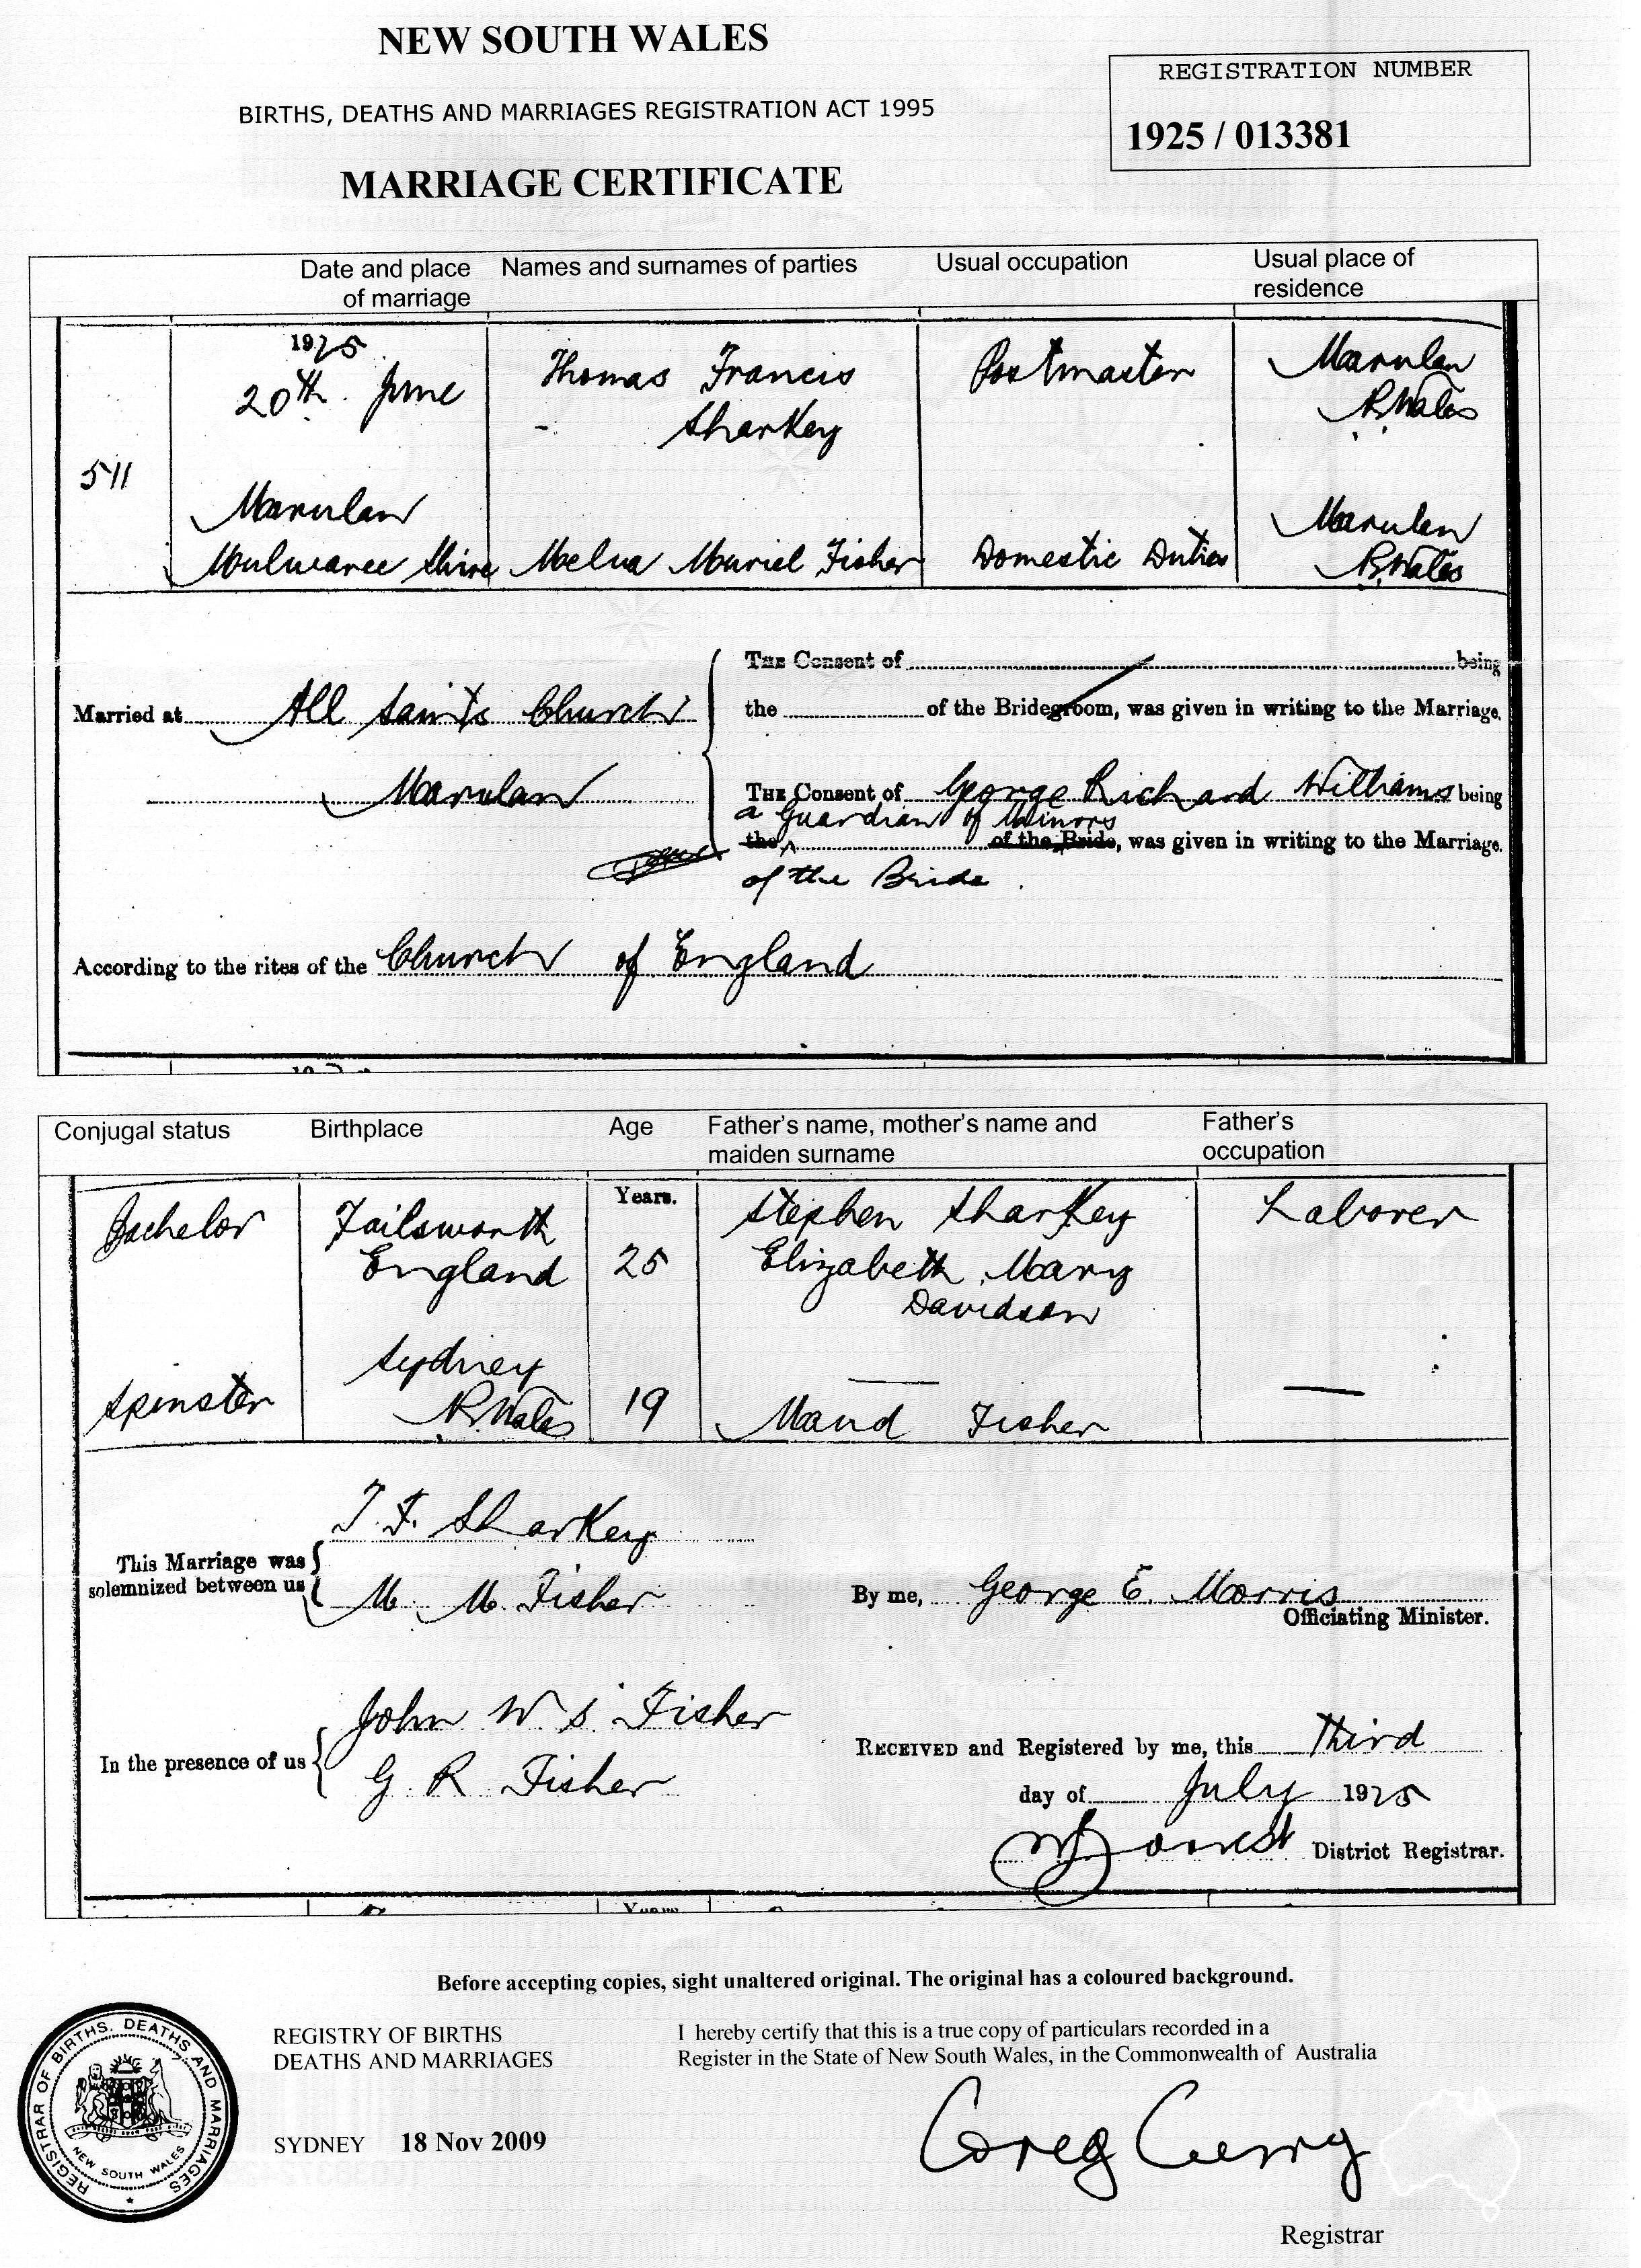 NEW SOUTH WALES
BIRTHS, DEATHS AND MARRIAGES REGISTRATION ACT 1995
MARRIAGE CERTIFICATE
REGISTRATION NUMBER
1925 / 013381
Date and place of marriage
Names and surnames of parties
Usual occupation
Usual place of residence
511
1925
20th June
Marulan
Mulwaree Shire
Thomas Francis
Sharkey
Postmaster
Marulan
N.S.Wales
Melva Muriel Fisher
Domestic Duties
Marulan
N.S.Wales
Married at All Saints Church
Marulan
THE Consent of being
the of the Bridegroom, was given in writing to the Marriage.
THE Consent of George Richard Williams being
a Guardian of Minors
the of the Bride, was given in writing to the Marriage.
of the Bride.
According to the rites of the Church of England
Conjugal status
Birthplace
Age
Father's name, mother's name and maiden surname
Father's occupation
Bachelor
Failsworth
England
Years.
25
Stephen Sharkey
Elizabeth Mary
Davidson
Laborer
Spinster
Sydney
N.S.Wales
19
—
Maud Fisher
—
This Marriage was solemnized between us
T. F. Sharkey
M. M. Fisher
By me, George E. Morris
Officiating Minister.
In the presence of us
John W S Fisher
G. R Fisher
RECEIVED and Registered by me, this Third
day of July 1925
District Registrar.
Before accepting copies, sight unaltered original. The original has a coloured background.
REGISTRAR OF BIRTHS, DEATHS AND MARRIAGES
NEW SOUTH WALES
REGISTRY OF BIRTHS
DEATHS AND MARRIAGES
SYDNEY 18 Nov 2009
I hereby certify that this is a true copy of particulars recorded in a
Register in the State of New South Wales, in the Commonwealth of Australia
Greg Curry
Registrar